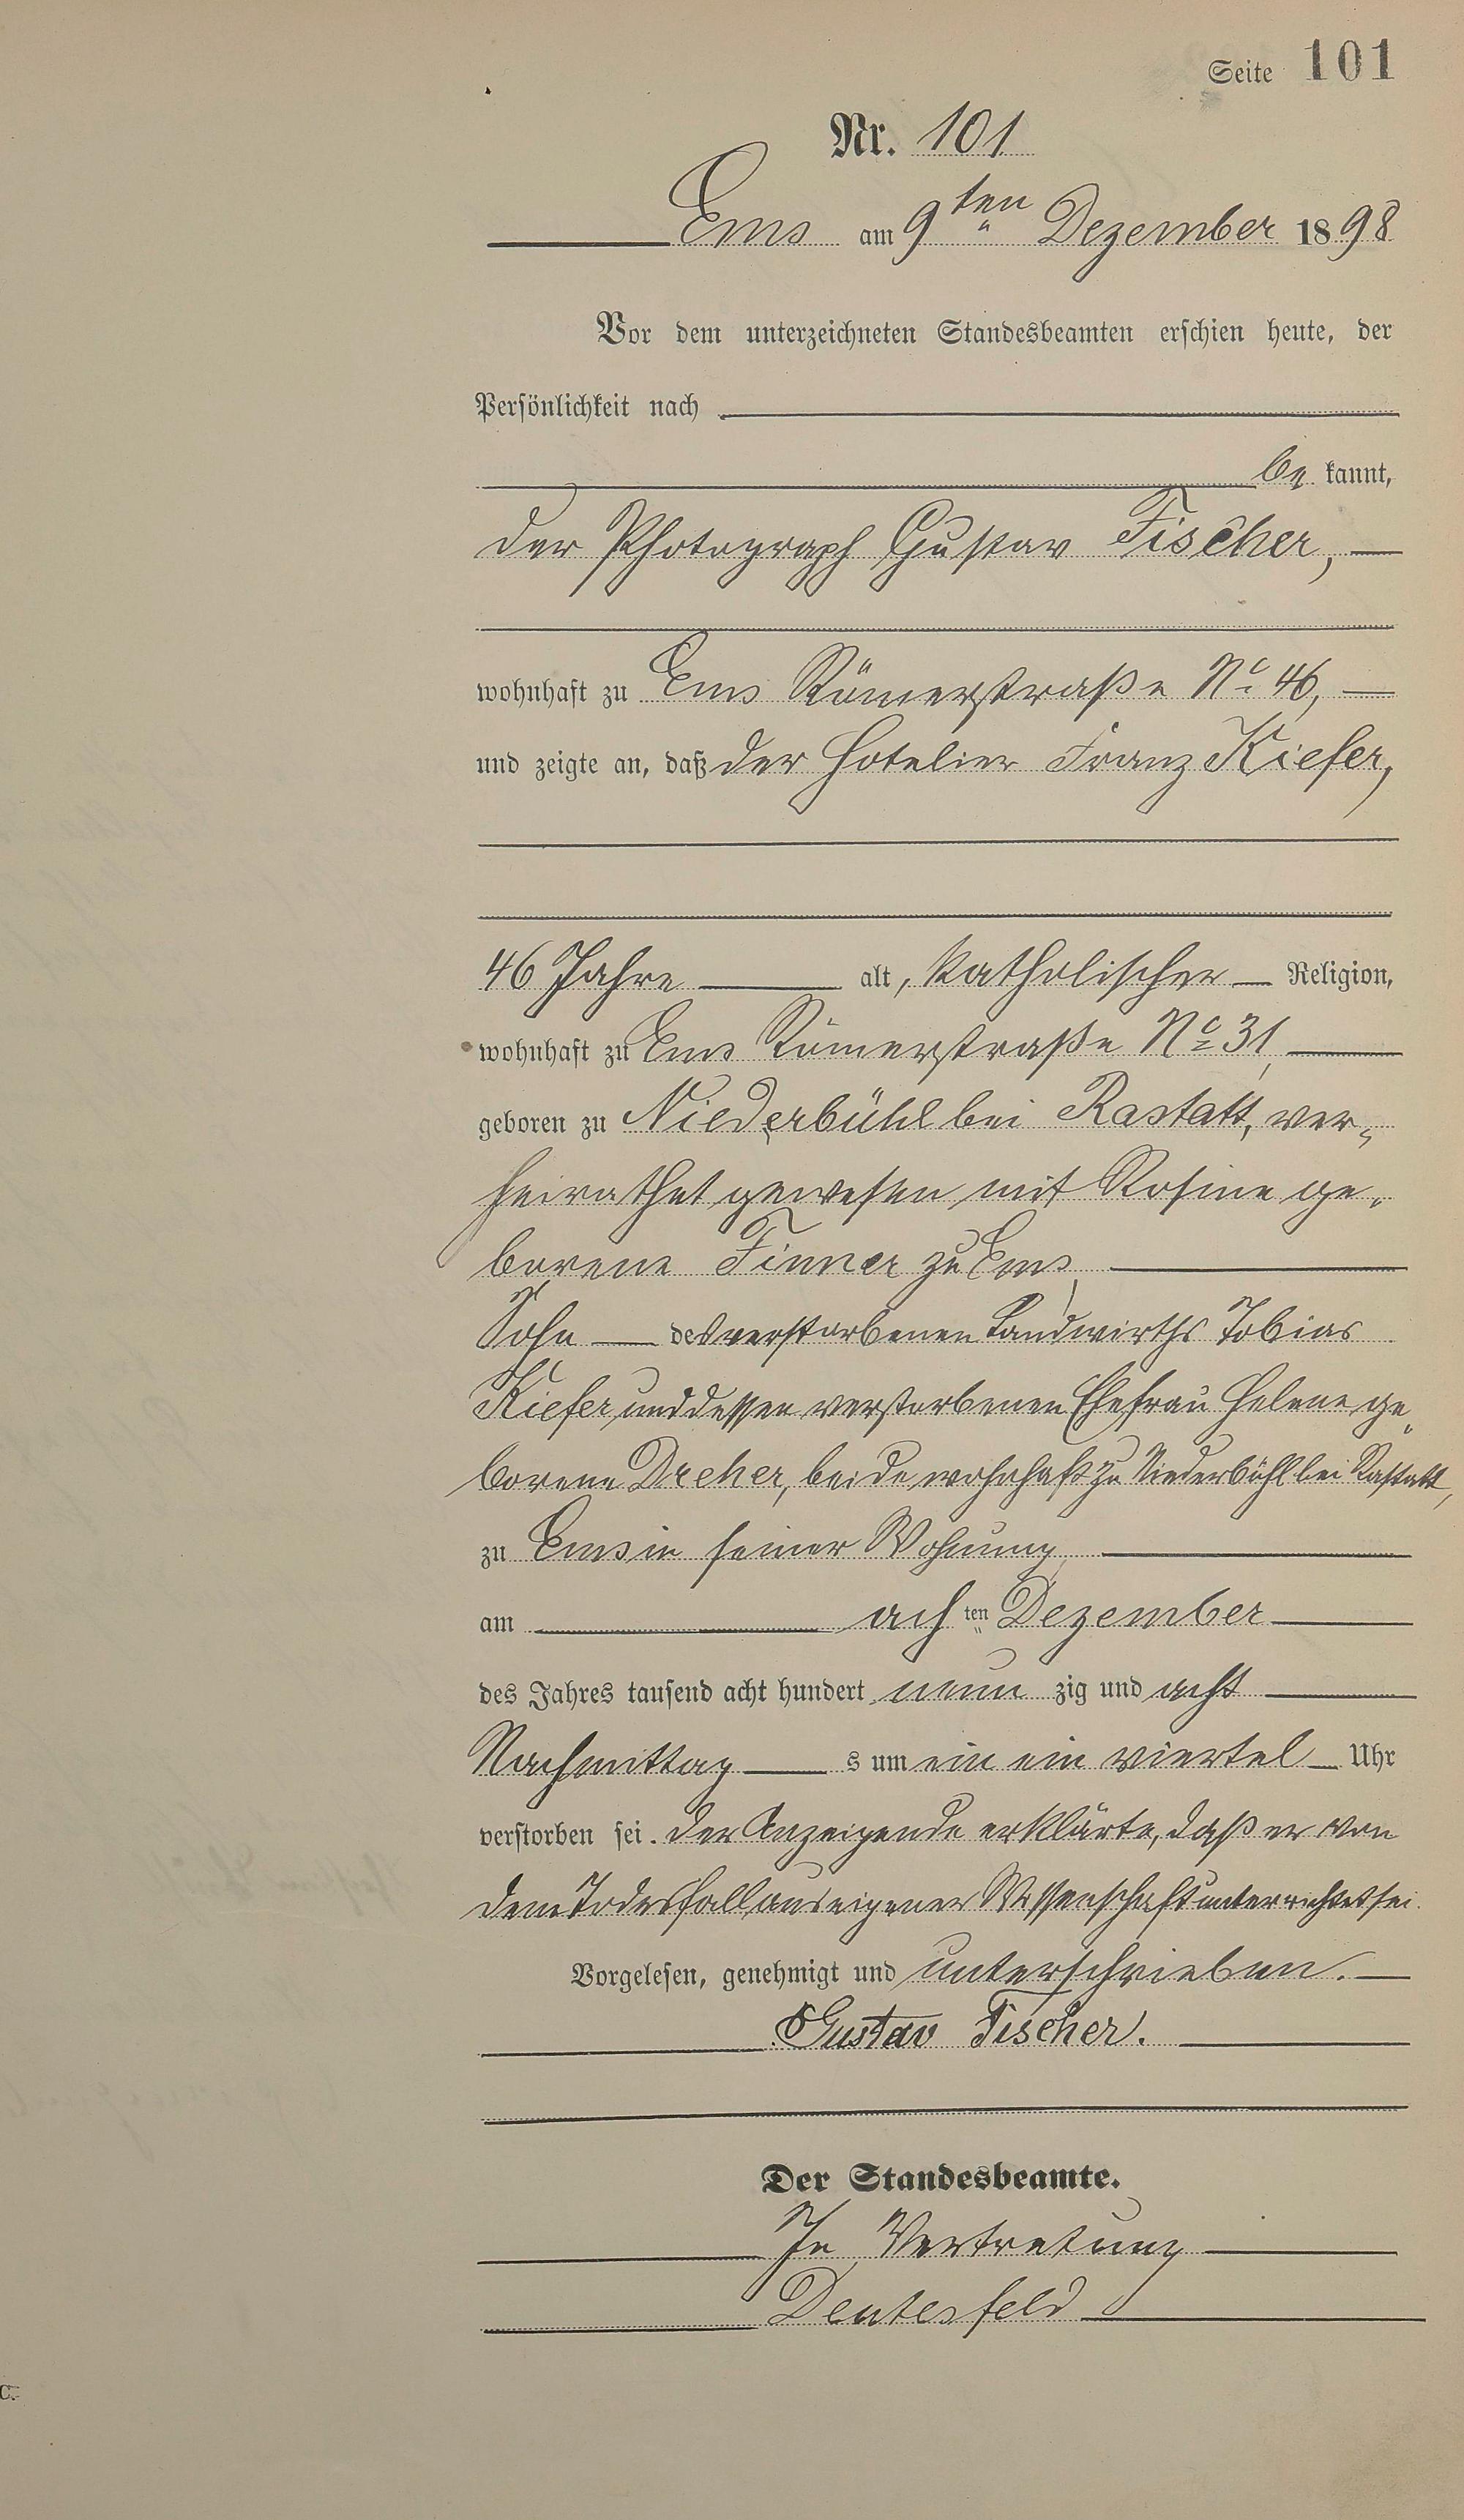 Seite 101
Nr. 101
Ems am 9ten Dezember 1898
Vor dem unterzeichneten Standesbeamten erschien heute, der
Persönlichkeit nach
be kannt,
der Photograph Gustav Fischer,
wohnhaft zu Ems Römerstraße No 46,
und zeigte an, daß der Hotelier Franz Kiefer,
46 Jahre alt, katholischer Religion,
wohnhaft zu Ems Römerstraße No 31,
geboren zu Niederbühl bei Rastatt, ver-
heirathet gewesen mit Rosine ge-
borene Finner zu Ems,
Sohn des verstorbenen Landwirths Tobias
Kiefer und dessen verstorbenen Ehefrau Helene ge-
borene Dreher, beide wohnhaft zu Niederbühl bei Rastatt,
zu Ems in seiner Wohnung,
am ach ten Dezember
des Jahres tausend acht hundert neun zig und acht
Nachmittag s um ein ein viertel Uhr
verstorben sei. Der Anzeigende erklärte, daß er von
dem Todesfall aus eigener Wissenschaft unterrichtet sei.
Vorgelesen, genehmigt und unterschrieben.
Gustav Fischer.
Der Standesbeamte.
In Vertretung
c.